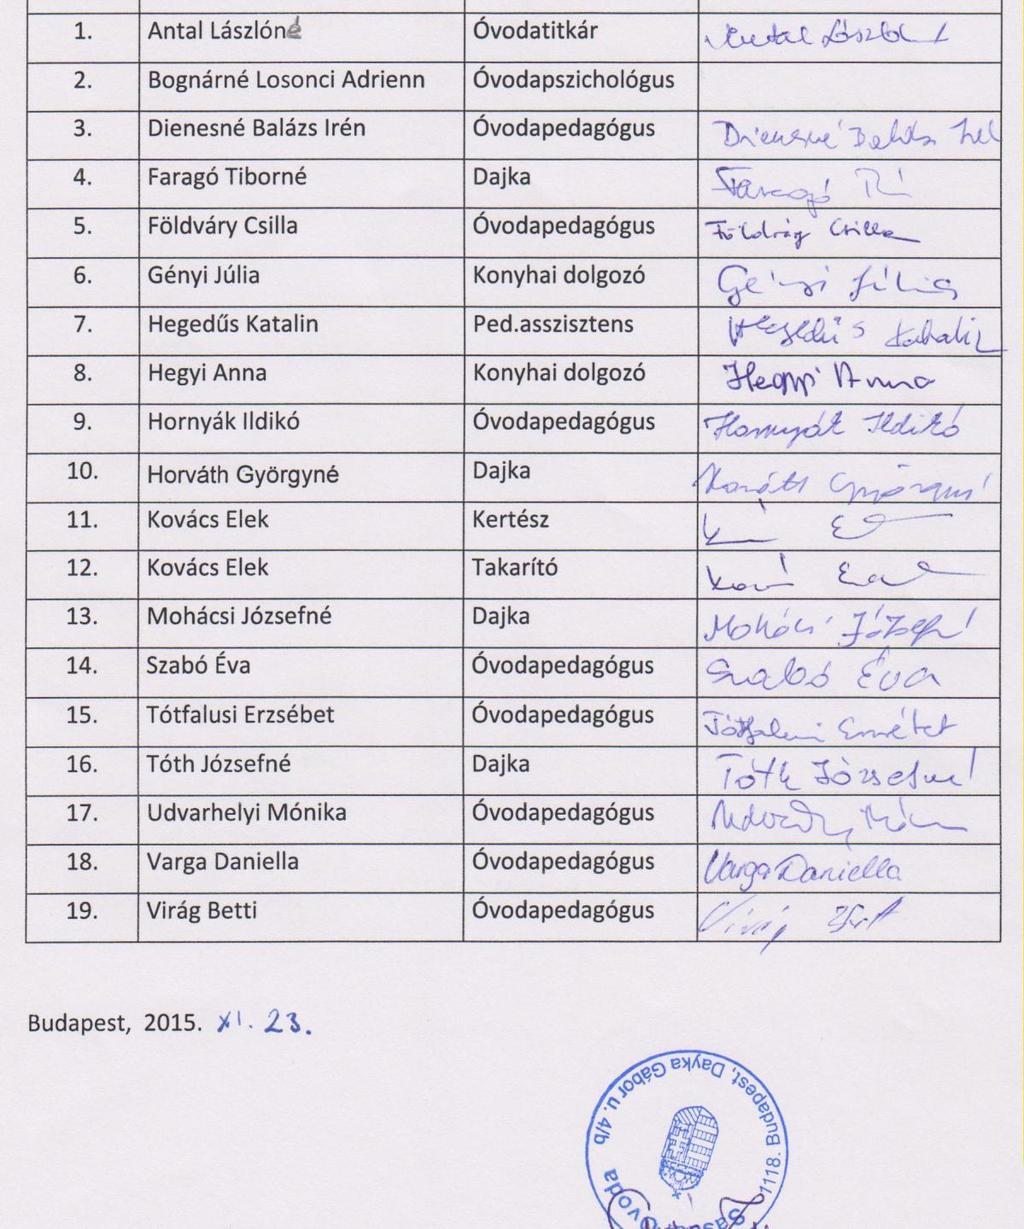 1. Antal Lászlóné Óvodatitkár Antal László
2. Bognárné Losonci Adrienn Óvodapszichológus
3. Dienesné Balázs Irén Óvodapedagógus Dienesné Balázs
4. Faragó Tiborné Dajka Faragó
5. Földváry Csilla Óvodapedagógus Földváry Csilla
6. Gényi Júlia Konyhai dolgozó Gényi Júlia
7. Hegedűs Katalin Ped.asszisztens Hegedűs Katalin
8. Hegyi Anna Konyhai dolgozó Hegyi Anna
9. Hornyák Ildikó Óvodapedagógus Hornyák Ildikó
10. Horváth Györgyné Dajka Horváth Györgyné
11. Kovács Elek Kertész
12. Kovács Elek Takarító
13. Mohácsi Józsefné Dajka
14. Szabó Éva Óvodapedagógus Szabó Éva
15. Tótfalusi Erzsébet Óvodapedagógus Tótfalusi Erzsébet
16. Tóth Józsefné Dajka Tóth Józsefné
17. Udvarhelyi Mónika Óvodapedagógus
18. Varga Daniella Óvodapedagógus Varga Daniella
19. Virág Betti Óvodapedagógus Virág
Budapest, 2015. XI. 23.
1118. Budapest, Dayka Gábor u. 4/b